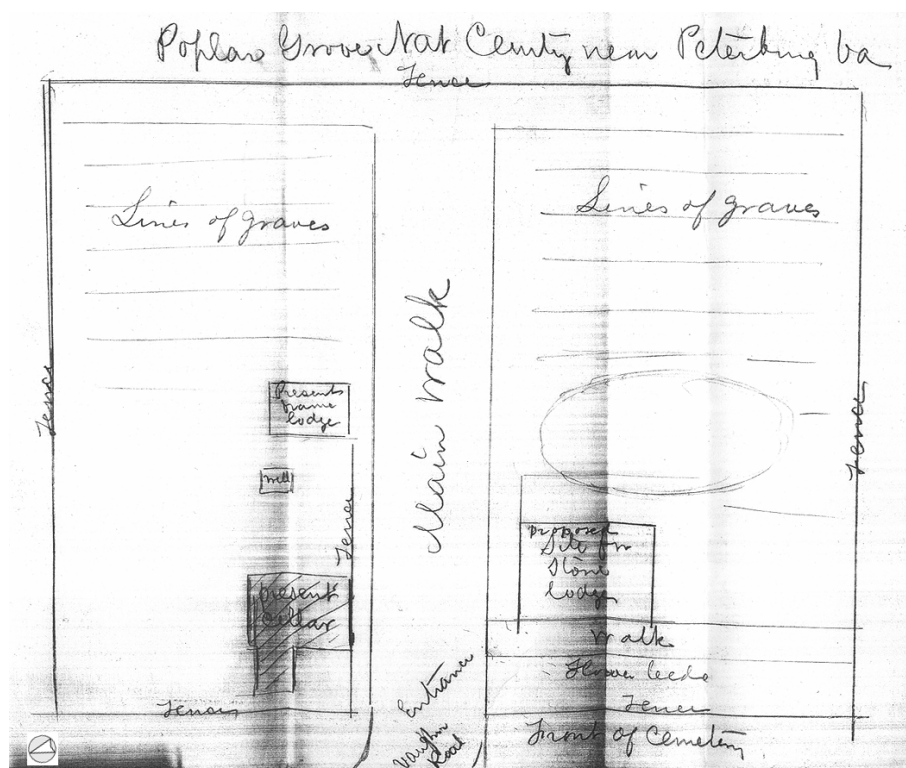 Poplar Grove Nat Cemty near Petersburg Va
Fence
Lines of graves
Lines of graves
Main Walk
Fence
Fence
Present
frame
lodge
well
Fence
present
cellar
proposed
Site for
Stone
lodge
Walk
Flower beds
Fence
Fence
Entrance
Vaughn
Road
Front of Cemetery